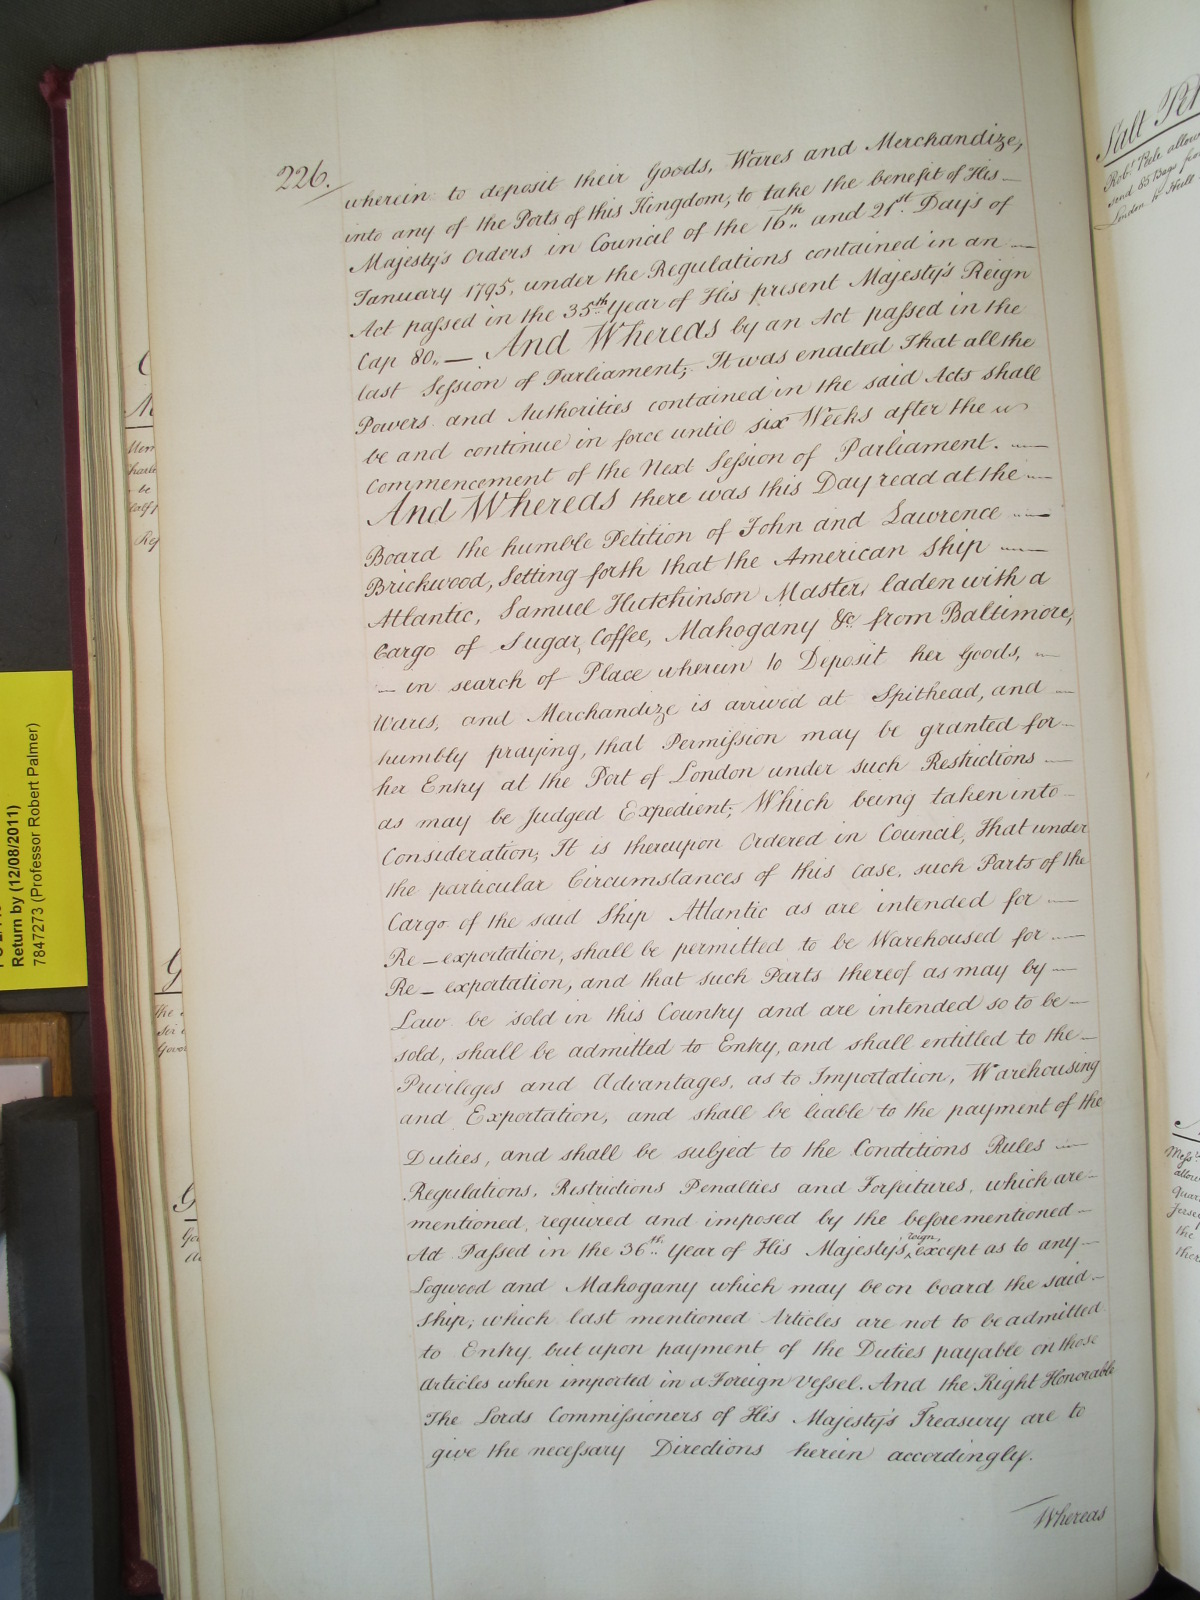 226.
wherein to deposit their Goods, Wares and Merchandize,
into any of the Ports of this Kingdom, to take the benefit of His
Majesty's Orders in Council of the 16th and 21st Days of
January 1795, under the Regulations contained in an
Act passed in the 35th Year of His present Majesty's Reign
Cap 80. — And Whereas by an Act passed in the
last Session of Parliament; It was enacted That all the
Powers and Authorities contained in the said Acts shall
be and continue in force until six Weeks after the
Commencement of the Next Session of Parliament.
And Whereas there was this Day read at the
Board the humble Petition of John and Lawrence
Brickwood, Setting forth that the American Ship
Atlantic, Samuel Hutchinson Master, laden with a
Cargo of Sugar, Coffee, Mahogany &c. from Baltimore,
— in search of Place wherein to Deposit her Goods,
Wares, and Merchandize is arrived at Spithead, and
humbly praying, that Permission may be granted for
her Entry at the Port of London under such Restrictions
as may be Judged Expedient; Which being taken into
Consideration; It is thereupon Ordered in Council, That under
the particular Circumstances of this case, such Parts of the
Cargo of the said Ship Atlantic as are intended for
Re-exportation, shall be permitted to be Warehoused for
Re-exportation, and that such Parts thereof as may by
Law be sold in this Country and are intended so to be
sold, shall be admitted to Entry, and shall entitled to the
Privileges and Advantages, as to Importation, Warehousing
and Exportation, and shall be liable to the payment of the
Duties, and shall be subject to the Conditions Rules
Regulations, Restrictions Penalties and Forfeitures, which are
mentioned, required and imposed by the beforementioned
Act Passed in the 36th Year of His Majesty's reign, except as to any
Logwood and Mahogany which may be on board the said
Ship; which last mentioned Articles are not to be admitted
to Entry but upon payment of the Duties payable on those
Articles when imported in a Foreign Vessel. And the Right Honorable
The Lords Commissioners of His Majesty's Treasury are to
give the necessary Directions herein accordingly.
Whereas
Return by (12/08/2011)
7847273 (Professor Robert Palmer)
Salt
Robt. allow
send 85 Bags
London to Hull